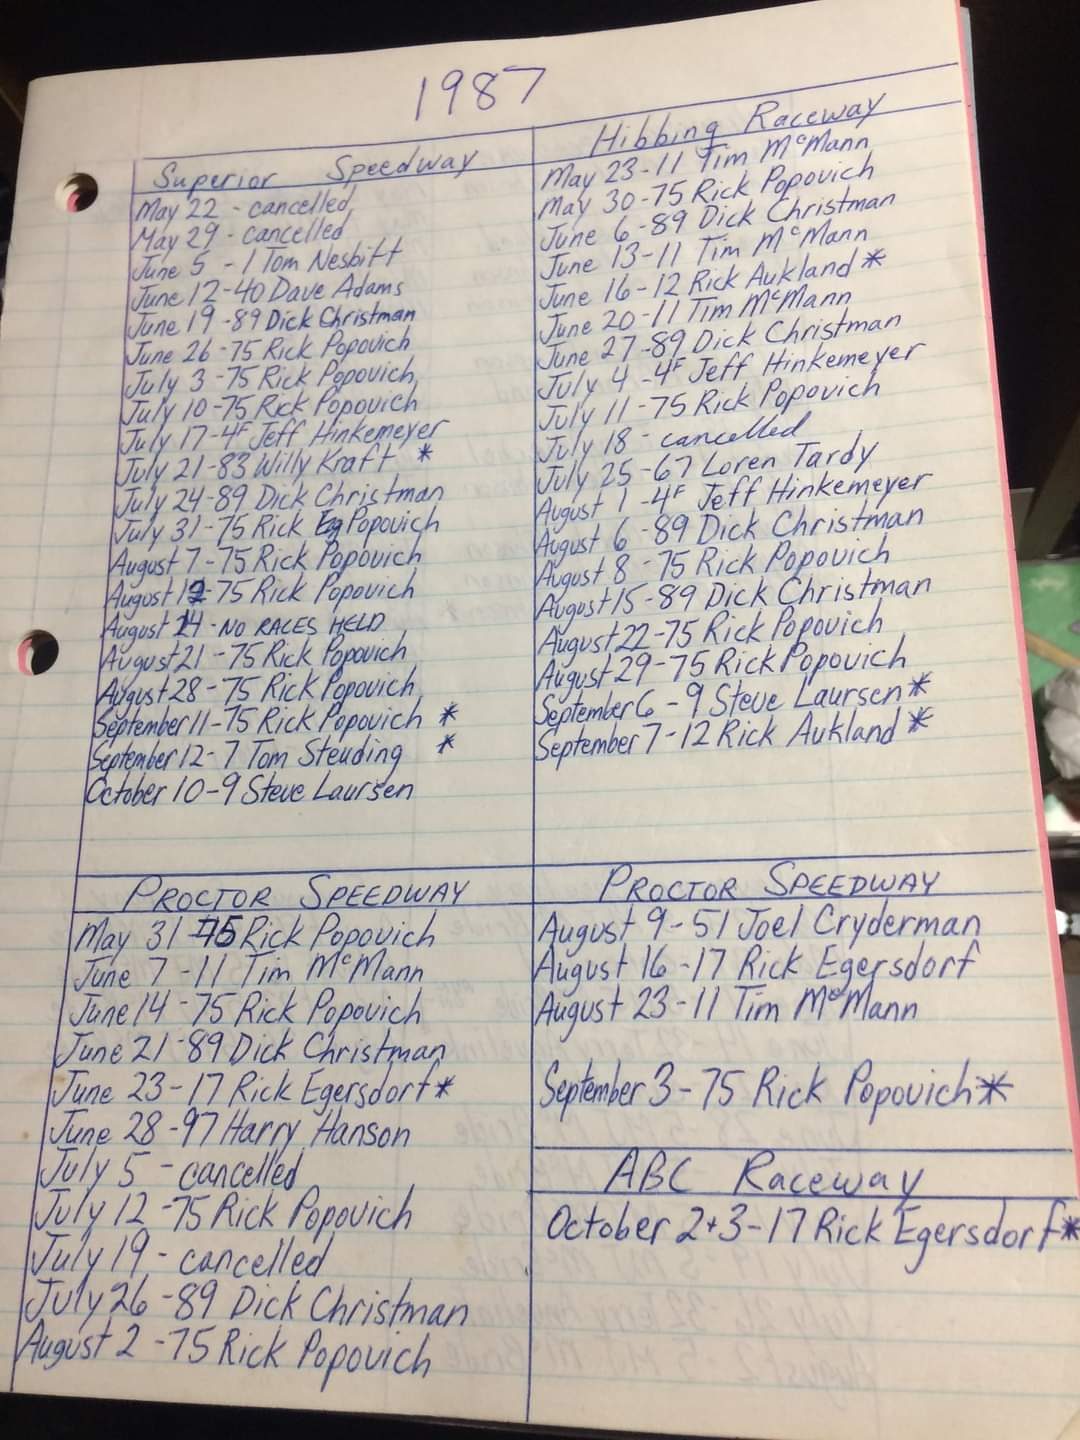 1987
Superior Speedway
May 22 - cancelled
May 29 - cancelled
June 5 - 1 Tom Nesbitt
June 12-40 Dave Adams
June 19 -89 Dick Christman
June 26 -75 Rick Popovich
July 3 -75 Rick Popovich
July 10-75 Rick Popovich
July 17-4F Jeff Hinkemeyer
July 21-83 Willy Kraft *
July 24-89 Dick Christman
July 31-75 Rick Eg Popovich
August 7-75 Rick Popovich
August 12-75 Rick Popovich
August 14 - NO RACES HELD
August 21 -75 Rick Popovich
August 28-75 Rick Popovich
September 11-75 Rick Popovich *
September 12-7 Tom Steuding *
October 10-9 Steve Laursen
Hibbing Raceway
May 23-11 Tim McMann
May 30-75 Rick Popovich
June 6-89 Dick Christman
June 13-11 Tim McMann
June 16-12 Rick Aukland *
June 20-11 Tim McMann
June 27-89 Dick Christman
July 4 -4F Jeff Hinkemeyer
July 11 -75 Rick Popovich
July 18 - cancelled
July 25 -67 Loren Tardy
August 1 -4F Jeff Hinkemeyer
August 6 -89 Dick Christman
August 8 -75 Rick Popovich
August 15-89 Dick Christman
August 22-75 Rick Popovich
August 29-75 Rick Popovich
September 6 - 9 Steve Laursen *
September 7-12 Rick Aukland *
PROCTOR SPEEDWAY
May 31 75 Rick Popovich
June 7 -11 Tim McMann
June 14 -75 Rick Popovich
June 21 -89 Dick Christman
June 23-17 Rick Egersdorf *
June 28 -97 Harry Hanson
July 5 - cancelled
July 12 -75 Rick Popovich
July 19 - cancelled
July 26 -89 Dick Christman
August 2 -75 Rick Popovich
PROCTOR SPEEDWAY
August 9-51 Joel Cryderman
August 16 -17 Rick Egersdorf
August 23-11 Tim McMann
September 3-75 Rick Popovich *
ABC Raceway
October 2+3-17 Rick Egersdorf *